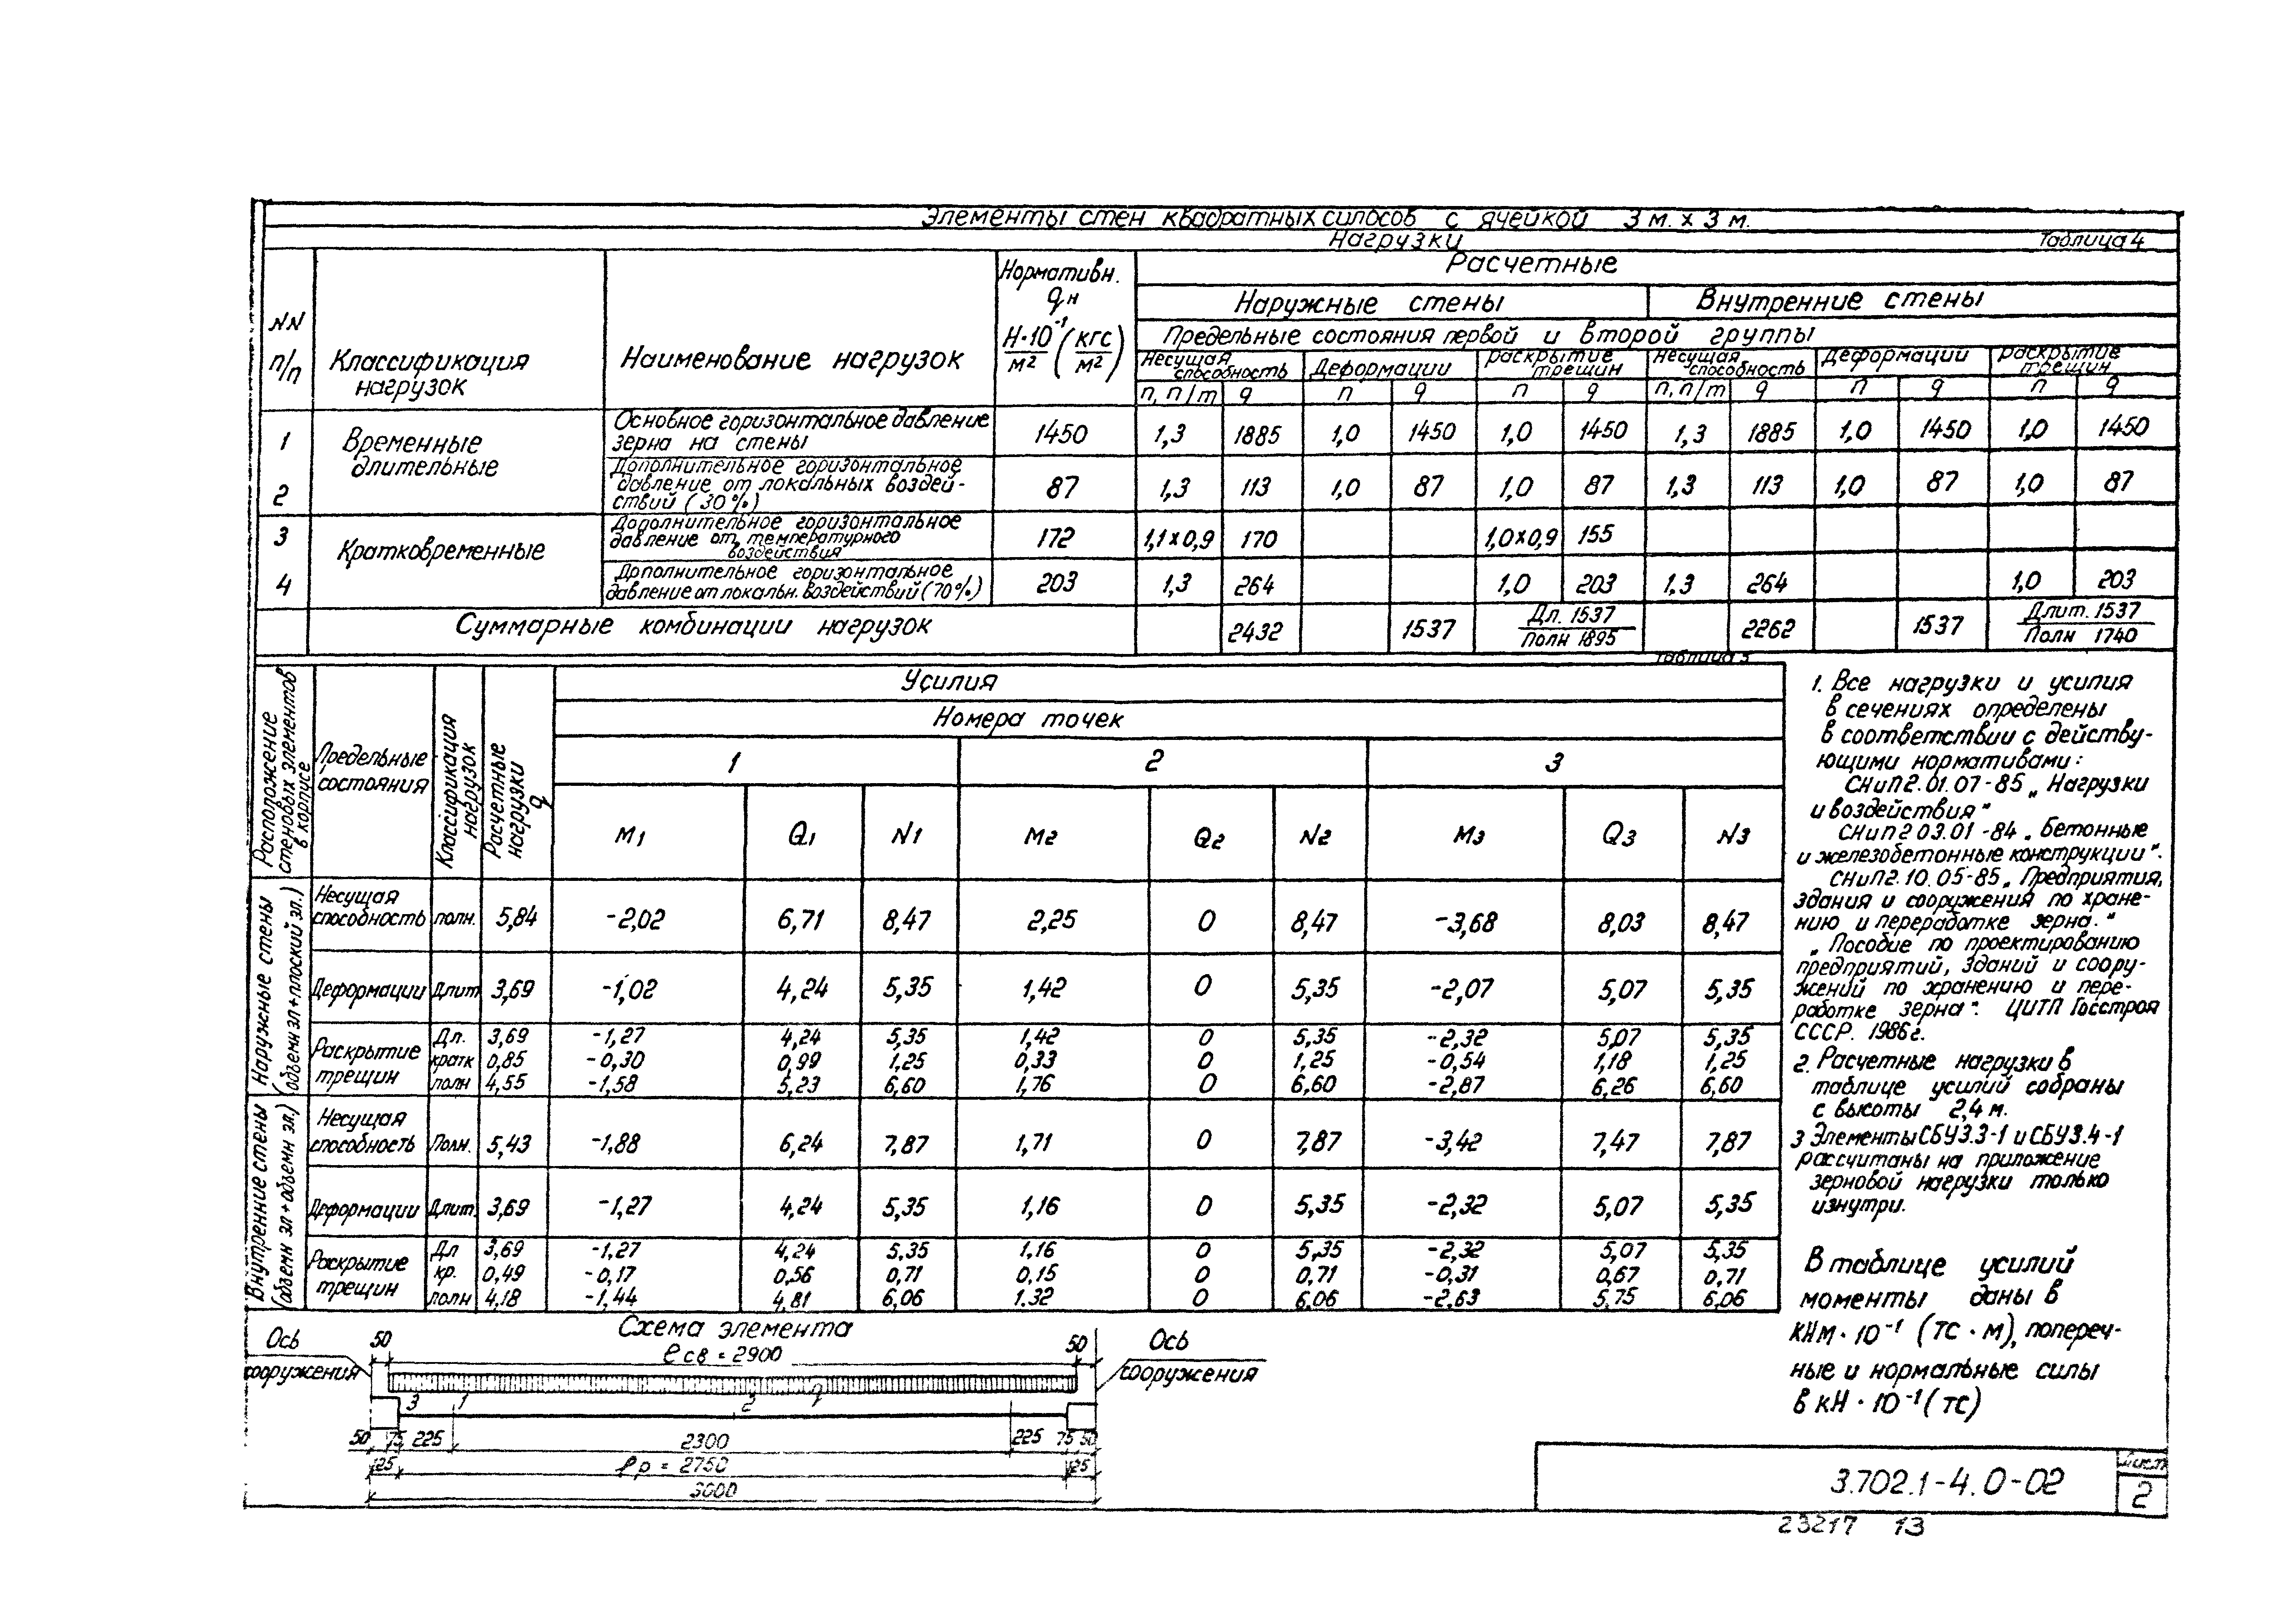 Элементы стен квадратных силосов с ячейкой 3 м. х 3 м.
Нагрузки
Таблица 4
NN п/п
Классификация нагрузок
Наименование нагрузок
Нормативн. qн Н·10⁻¹/м² (кгс/м²)
Расчетные
Наружные стены Внутренние стены
Предельные состояния первой и второй группы
Несущая способность Деформации Раскрытие трещин Несущая способность Деформации Раскрытие трещин
п, п/т q п q п q п, п/т q п q п q
1 Временные длительные
Основное горизонтальное давление
зерна на стены
1450 1,3 1885 1,0 1450 1,0 1450 1,3 1885 1,0 1450 1,0 1450
2
Дополнительное горизонтальное
давление от локальных воздей-
ствий (30%)
87 1,3 113 1,0 87 1,0 87 1,3 113 1,0 87 1,0 87
3 Кратковременные
Дополнительное горизонтальное
давление от температурного
воздействия
172 1,1х0,9 170 1,0х0,9 155
4
Дополнительное горизонтальное
давление от локальн. воздействий (70%)
203 1,3 264 1,0 203 1.3 264 1,0 203
Суммарные комбинации нагрузок
2432 1537 Дл. 1537 / Полн 1895 2262 1537 Длит. 1537 / Полн 1740
Таблица 5
Расположение стеновых элементов в корпусе
Предельные состояния
Классификация нагрузок
Расчетные нагрузки q
Усилия
Номера точек
1 2 3
М1 Q1 N1 М2 Q2 N2 М3 Q3 N3
Наружные стены (объемн эл+плоский эл.)
Несущая способность полн. 5,84 -2,02 6,71 8,47 2,25 0 8,47 -3,68 8,03 8,47
Деформации Длит 3,69 -1,02 4,24 5,35 1,42 0 5,35 -2,07 5,07 5,35
Раскрытие трещин
Дл. 3,69 -1,27 4,24 5,35 1,42 0 5,35 -2,32 5,07 5,35
кратк 0,85 -0,30 0,99 1,25 0,33 0 1,25 -0,54 1,18 1,25
полн 4,55 -1,58 5,23 6,60 1,76 0 6,60 -2,87 6,26 6,60
Внутренние стены (объемн эл+объемн эл.)
Несущая способность Полн. 5,43 -1,88 6,24 7,87 1,71 0 7,87 -3,42 7,47 7,87
Деформации Длит 3,69 -1,27 4,24 5,35 1,16 0 5,35 -2,32 5,07 5,35
Раскрытие трещин
Дл 3,69 -1,27 4,24 5,35 1,16 0 5,35 -2,32 5,07 5,35
кр. 0,49 -0,17 0,56 0,71 0,15 0 0,71 -0,31 0,67 0,71
полн 4,18 -1,44 4,81 6,06 1.32 0 6,06 -2,63 5,75 6,06
1. Все нагрузки и усилия
в сечениях определены
в соответствии с действу-
ющими нормативами:
СНиП 2.01.07-85 „Нагрузки
и воздействия"
СНиП 2 03.01-84 „Бетонные
и железобетонные конструкции".
СНиП 2.10.05-85 „Предприятия,
здания и сооружения по хране-
нию и переработке зерна."
„Пособие по проектированию
предприятий, зданий и соору-
жений по хранению и пере-
работке зерна". ЦИТП Госстроя
СССР. 1986 г.
2. Расчетные нагрузки в
таблице усилий собраны
с высоты 2,4 м.
3 Элементы СБУ3.3-1 и СБУ3.4-1
рассчитаны на приложение
зерновой нагрузки только
изнутри.
В таблице усилий
моменты даны в
КНм·10⁻¹ (тс·м), попереч-
ные и нормальные силы
в кН·10⁻¹ (тс)
Схема элемента
Ось сооружения 50 ℓсв = 2900 50 Ось сооружения
3 1 2 q
50 75 225 2300 225 75 50
125 ℓр = 2750 125
3000
3.702.1-4.0-02
Лист
2
23217 13